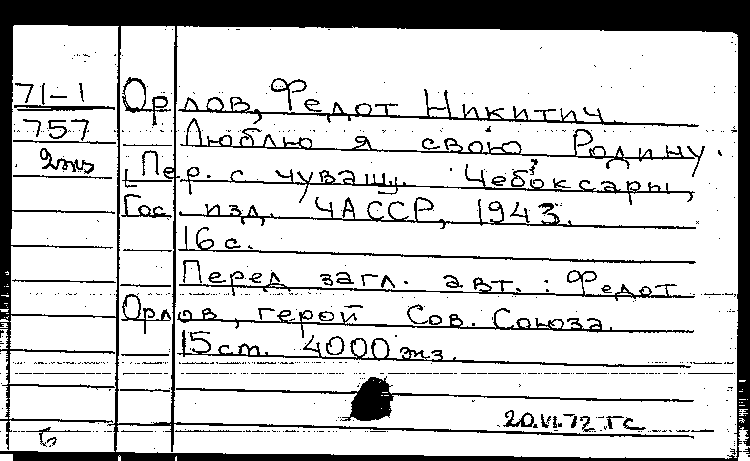 71-1 Орлов, Федот Никитич
757 Люблю я свою Родину.
2экз [Пер. с чуваш. Чебоксары,
Гос. изд. ЧАССР, 1943.
16 с.
Перед загл. авт.: Федот
Орлов, герой Сов. Союза.
15 ст. 4000 экз.
20.VI.72 ГС
Б